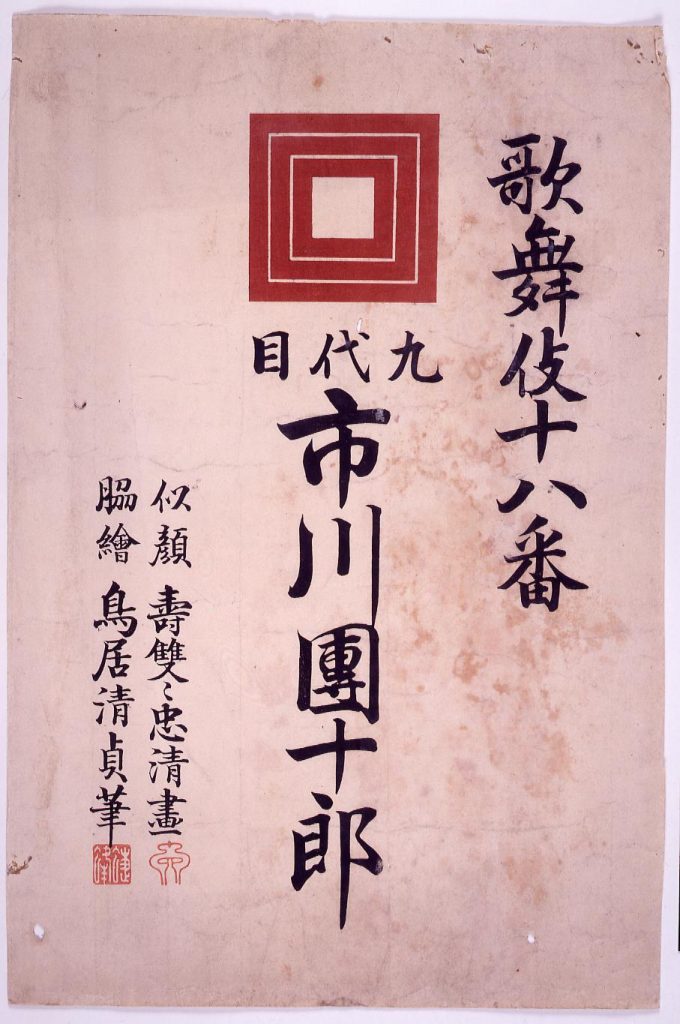 歌舞伎十八番
九代目
市川團十郎
似顔　壽雙〻忠清畫
脇繪　鳥居清貞筆